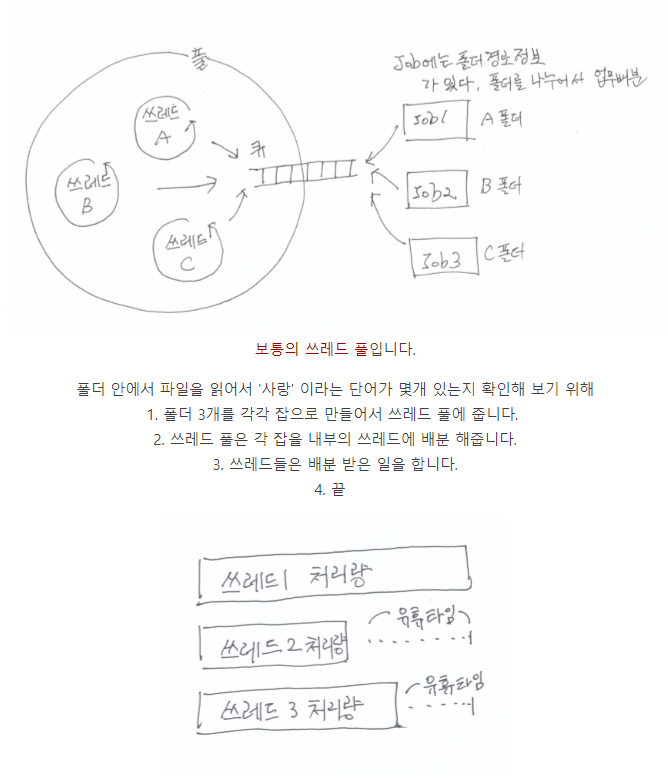 풀
Job에는 폴더 경로정보
가 있다, 폴더를 나누어서 업무배분
쓰레드
A
쓰레드
B
쓰레드
C
큐
Job1
A 폴더
Job2
B 폴더
Job3
C 폴더
보통의 쓰레드 풀입니다.
폴더 안에서 파일을 읽어서 '사랑' 이라는 단어가 몇개 있는지 확인해 보기 위해
1. 폴더 3개를 각각 잡으로 만들어서 쓰레드 풀에 줍니다.
2. 쓰레드 풀은 각 잡을 내부의 쓰레드에 배분 해줍니다.
3. 쓰레드들은 배분 받은 일을 합니다.
4. 끝
쓰레드1 처리량
쓰레드 2 처리량
유휴타임
쓰레드 3 처리량
유휴타임